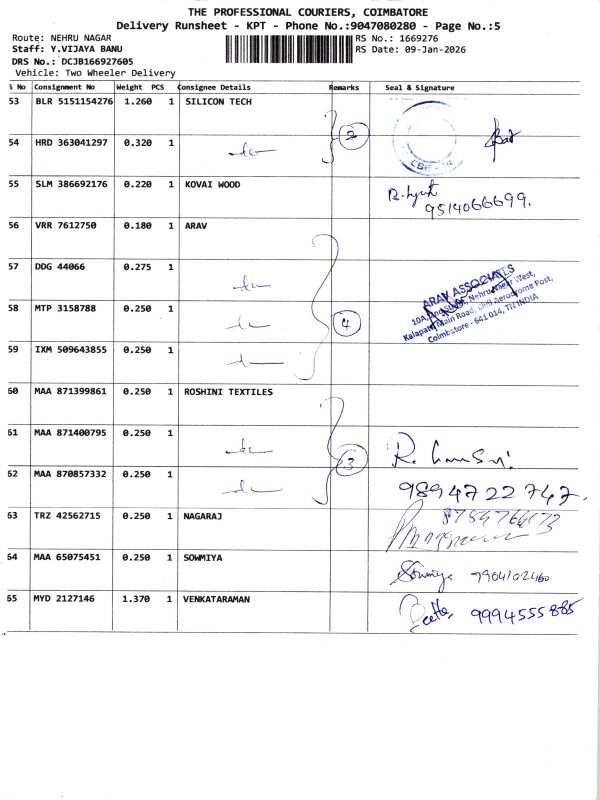 THE PROFESSIONAL COURIERS, COIMBATORE
Delivery Runsheet - KPT - Phone No.:9047080280 - Page No.:5
Route: NEHRU NAGAR
RS No.: 1669276
Staff: Y.VIJAYA BANU
RS Date: 09-Jan-2026
DRS No.: DCJB166927605
Vehicle: Two Wheeler Delivery
S No Consignment No Weight PCS Consignee Details Remarks Seal & Signature
53 BLR 5151154276 1.260 1 SILICON TECH
2
54 HRD 363041297 0.320 1
55 SLM 386692176 0.220 1 KOVAI WOOD
9514066699.
56 VRR 7612750 0.180 1 ARAV
57 DDG 44066 0.275 1
ARAV ASSOCIATES
Nehru Nagar West,
Kalapatti Main Road, Civil Aerodrome Post,
Coimbatore - 641 014, TN INDIA
58 MTP 3158788 0.250 1
4
59 IXM 509643855 0.250 1
60 MAA 871399861 0.250 1 ROSHINI TEXTILES
61 MAA 871400795 0.250 1
3
62 MAA 870857332 0.250 1
98947 22 747.
63 TRZ 42562715 0.250 1 NAGARAJ
64 MAA 65075451 0.250 1 SOWMIYA
Sowmiya
65 MYD 2127146 1.370 1 VENKATARAMAN
Geetha 9994555885